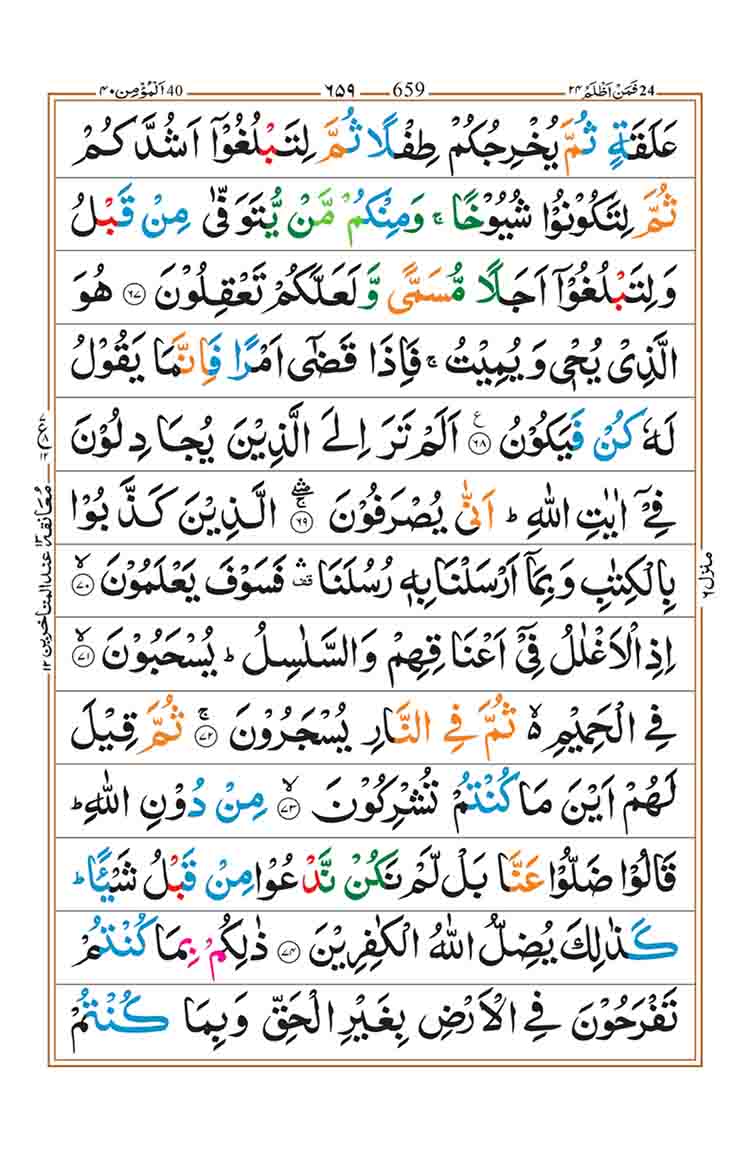 24 فَمَنْ اَظْلَمُ ٢٤ 659 ٦٥٩ 40 اَلْمُؤْمِن ٤٠
عَلَقَةٍ ثُمَّ يُخْرِجُكُمْ طِفْلًا ثُمَّ لِتَبْلُغُوْٓا اَشُدَّكُمْ
ثُمَّ لِتَكُوْنُوْا شُيُوْخًا ۚ وَمِنْكُمْ مَّنْ يُّتَوَفّٰى مِنْ قَبْلُ
وَلِتَبْلُغُوْٓا اَجَلًا مُّسَمًّى وَّلَعَلَّكُمْ تَعْقِلُوْنَ ﴿٦٧﴾ هُوَ
الَّذِىْ يُحْىٖ وَيُمِيْتُ ۚ فَاِذَا قَضٰٓى اَمْرًا فَاِنَّمَا يَقُوْلُ
لَهٗ كُنْ فَيَكُوْنُ ﴿٦٨﴾ ع اَلَمْ تَرَ اِلَى الَّذِيْنَ يُجَادِلُوْنَ
فِىْٓ اٰيٰتِ اللّٰهِ ؕ اَنّٰى يُصْرَفُوْنَ ﴿٦٩﴾ الَّذِيْنَ كَذَّبُوْا
بِالْكِتٰبِ وَبِمَآ اَرْسَلْنَا بِهٖ رُسُلَنَا قف فَسَوْفَ يَعْلَمُوْنَ ﴿٧٠﴾ ۙ
اِذِ الْاَغْلٰلُ فِىْٓ اَعْنَاقِهِمْ وَالسَّلٰسِلُ ؕ يُسْحَبُوْنَ ﴿٧١﴾ ۙ
فِى الْحَمِيْمِ ۙ ثُمَّ فِى النَّارِ يُسْجَرُوْنَ ﴿٧٢﴾ ۚ ثُمَّ قِيْلَ
لَهُمْ اَيْنَ مَا كُنْتُمْ تُشْرِكُوْنَ ﴿٧٣﴾ ۙ مِنْ دُوْنِ اللّٰهِ ؕ
قَالُوْا ضَلُّوْا عَنَّا بَلْ لَّمْ نَكُنْ نَّدْعُوْا مِنْ قَبْلُ شَيْئًا ؕ
كَذٰلِكَ يُضِلُّ اللّٰهُ الْكٰفِرِيْنَ ﴿٧٤﴾ ذٰلِكُمْ بِمَا كُنْتُمْ
تَفْرَحُوْنَ فِى الْاَرْضِ بِغَيْرِ الْحَقِّ وَبِمَا كُنْتُمْ
منزل ٦
معانقة ١٣ عند المتاخرين ١٢